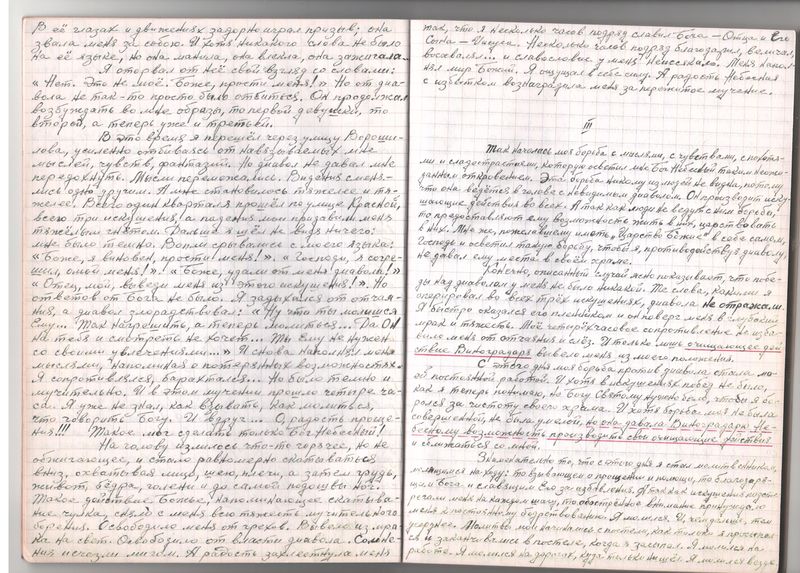 В её глазах и движениях задорно играл призыв: она
звала меня за собою. И хотя никакого слова не было
на её языке, но она манила, она влекла, она зажигала...
Я оторвал от неё свой взгляд со словами:
« Нет. Это не моё. Боже, прости меня! » Но от диа-
вола не так-то просто было отвиться. Он продолжал
возбуждать во мне образы, то первой девушки, то
второй, а теперь уже и третьей.
В это время я перешёл через улицу Вороши-
лова, усиленно отбиваясь от навязываемых мне
мыслей, чувств, фантазий. Но диавол не давал мне
передохнуть. Мысли перемежались. Видения сменя-
лись одно другим. А мне становилось тяжелее и тя-
желее. Всего один квартал я прошёл по улице Красной,
всего три искушения, а падения мои придавили меня
тяжёлым гнётом. Дальше я шёл не видя ничего:
мне было темно. Вопли срывались с моего языка:
« Боже, я виновен, прости меня! ». « Господи, я согре-
шил, омой меня! ». « Боже, удали от меня диавола! »
« Отец, мой, выведи меня из этого искушения! ». Но
ответов от Бога не было. Я задыхался от отчая-
ния, а диавол злорадствовал: « Ну что ты молишся
Ему... Так нагрешить, а теперь молиться... Да Он
на тебя и смотреть не хочет... Ты Ему не нужен
со своими увлечениями...» И снова наполнял меня
мыслями, напоминая о потерянных возможностях.
Я сопротивлялся, барахтался... Но было темно и
мучительно. И в этом мучении прошло четыре ча-
са. Я уже не знал, как взывать, как молиться,
что говорить Богу. И вдруг... О, радость проще-
ния!!! Такое мог сделать только Бог Небесный!
На голову излилось что-то горячее, но не
обжигающее, и стало равномерно скатываться
вниз, охватывая лицо, шею, плечи, а затем грудь,
живот, бёдра, голени и до самой подошвы ног.
Такое действие Божье, напоминающее скатыва-
ние чулка, сняло с меня всю тяжесть мучительного
борения. Освободило меня от грехов. Вывело из мра-
ка на свет. Освободило от власти диавола. Сомне-
ния исчезли мигом. А радость захлестнула меня
так, что я несколько часов подряд славил Бога – Отца и Его
Сына – Иисуса. Несколько часов подряд благодарил, величал,
восхвалял... и славословие у меня не иссякало. Меня напол-
нял мир Божий. Я ощущал в себе силу. А радость Небесная
с избытком вознаградила меня за пережитое мучение.
III
Так началась моя борьба с мыслями, с чувствами, с похотя-
ми и сладострастием, которую осветил мне Бог Небесный таким неожи-
данным откровением. Эта борьба никому из людей не видна, потому
что она ведётся в голове с невидимым диаволом. Он производит иску-
шающие действия во всех. А так как люди не ведут с ним борьбы,
то предоставляют ему возможность жить в них, царствовать
в них. Мне же, пожелавшему иметь „Царство Божие“ в себе самом,
Господь и осветил такую борьбу, чтобы я, противодействуя диаволу,
не давал ему места в своём храме.
Конечно, описанный случай ясно показывает, что побе-
ды над диаволом у меня не было никакой. Те слова, какими я
оперировал во всех трёх искушениях, диавола не отражали.
Я быстро оказался его пленником и он поверг меня в глубокий
мрак и тяжесть. Моё четырёхчасовое сопротивление не изба-
вило меня от отчаяния и слёз. И только лишь очищающее дей
ствие Виноградаря вывело меня из моего положения.
С этого дня моя борьба против диавола стала мо-
ей постоянной работой. И хотя в искушениях побед не было,
как я теперь понимаю, но Богу Святому нужно было, чтобы я бо-
ролся за чистоту своего храма. И хотя борьба моя не была
совершенной, не была умелой, но она давала Виноградарю Не-
бесному возможность производить свои очищающие действия
и сближаться со мной.
Знаменательно то, что с этого дня я стал молитвенником,
молящимся на ходу: то взывающим о прощении и помощи, то благодаря-
щим Бога и славящим Его за избавления. А так как искушения подсте-
регали меня на каждом шагу, то обострённое внимание принуждало
меня к постоянному бодрствованию. Я молился. И, чем дальше, тем
усерднее. Молитвы мои начинались с постели, как только я просыпал-
ся и заканчивались в постеле, когда я засыпал. Я молился на
работе. Я молился на дорогах, куда только ни шёл. Я молился везде.